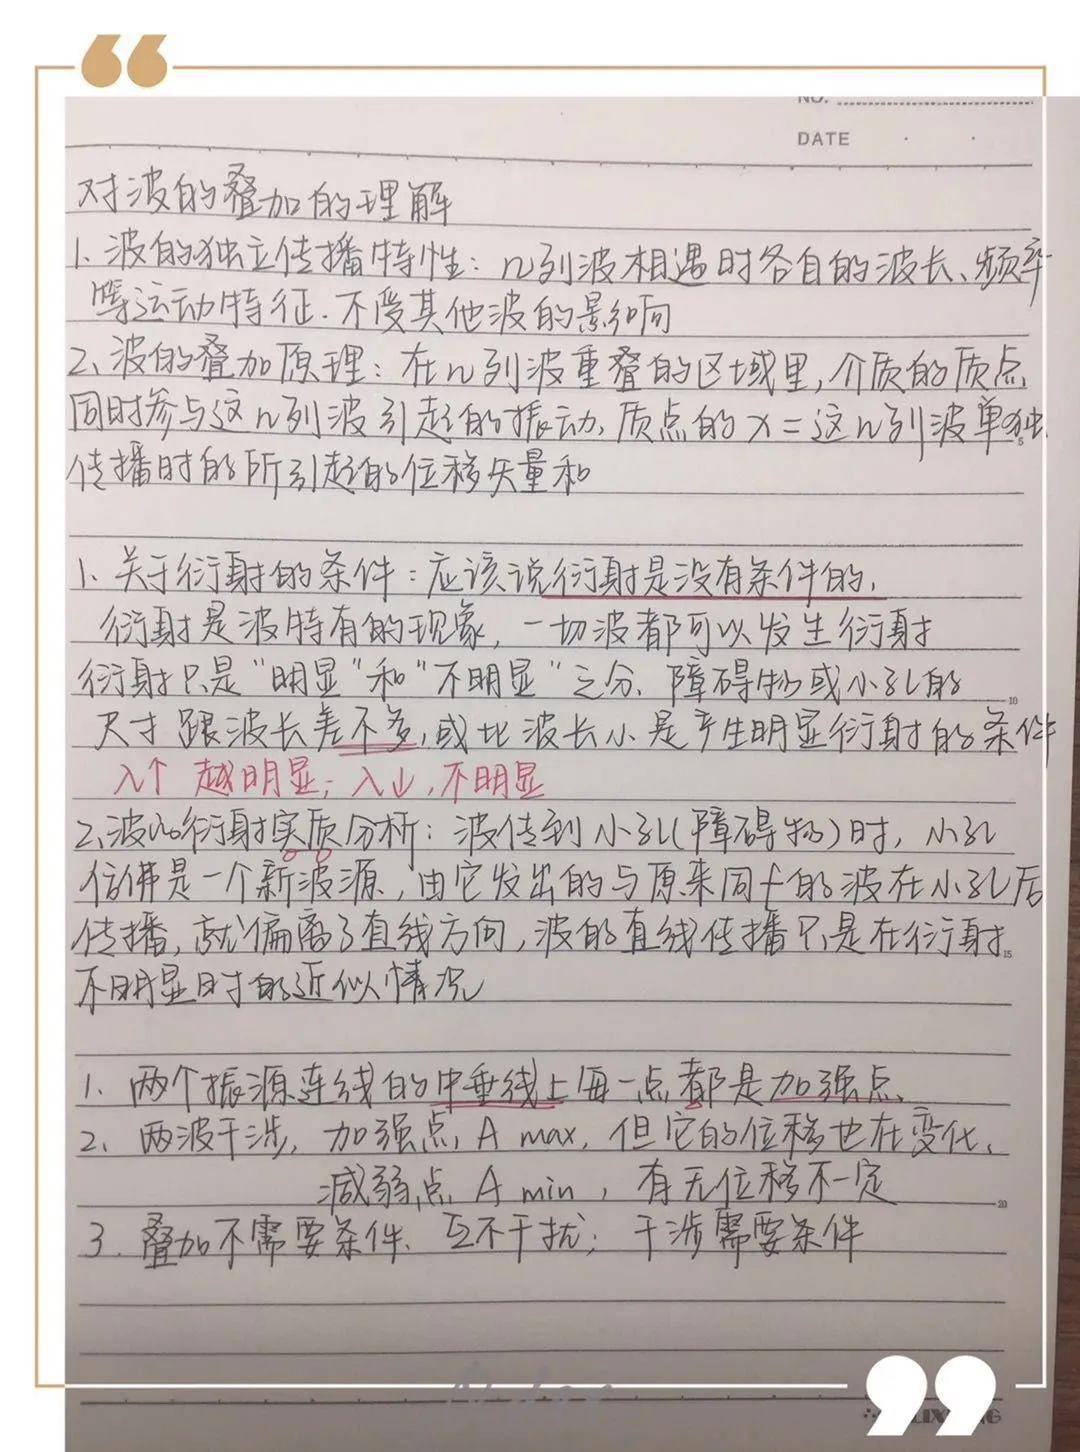 NO.
DATE
对波的叠加的理解
1、波的独立传播特性：n列波相遇时各自的波长、频率
等运动特征.不受其他波的影响
2、波的叠加原理：在n列波重叠的区域里,介质的质点
同时参与这n列波引起的振动,质点的x=这n列波单独
传播时的所引起的位移矢量和
1、关于衍射的条件：应该说衍射是没有条件的,
衍射是波特有的现象,一切波都可以发生衍射
衍射只是“明显”和“不明显”之分、障碍物或小孔的
尺寸跟波长差不多,或比波长小是产生明显衍射的条件
λ↑ 越明显；λ↓,不明显
2、波的衍射实质分析：波传到小孔(障碍物)时,小孔
信佛是一个新波源,由它发出的与原来同f的波在小孔后
传播,就偏离了直线方向,波的直线传播只是在衍射
不明显时的近似情况
1. 两个振源连线的中垂线上每一点都是加强点、
2、两波干涉,加强点A max,但它的位移也在变化、
减弱点A min,有无位移不一定
3.叠加不需要条件、互不干扰；干涉需要条件